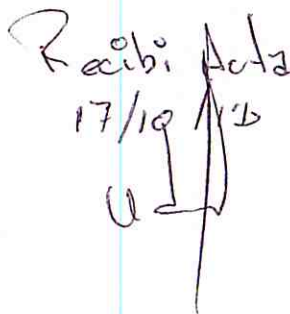 Recibi Acta
17/10